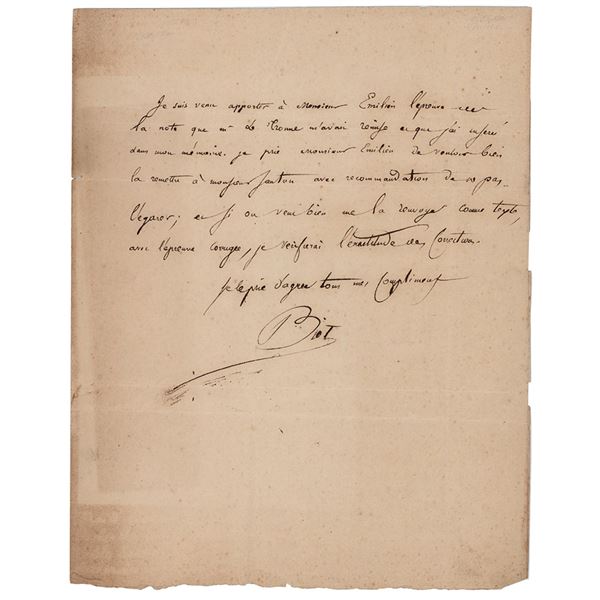 Je suis venu apporter à Monsieur Emilien l'épreuve
la note que mr de m'avait remise et que j'ai inséré
dans mon mémoire. je prie Monsieur Emilien de vouloir bien
la remettre à monsieur avec recommandation de ne pas
l'égarer; et si on veut bien me la renvoyer comme texte,
avec l'épreuve corrigée, je vérifierai l'exactitude des Corrections.
Je le prie d'agréer tous mes Compliments
Biot